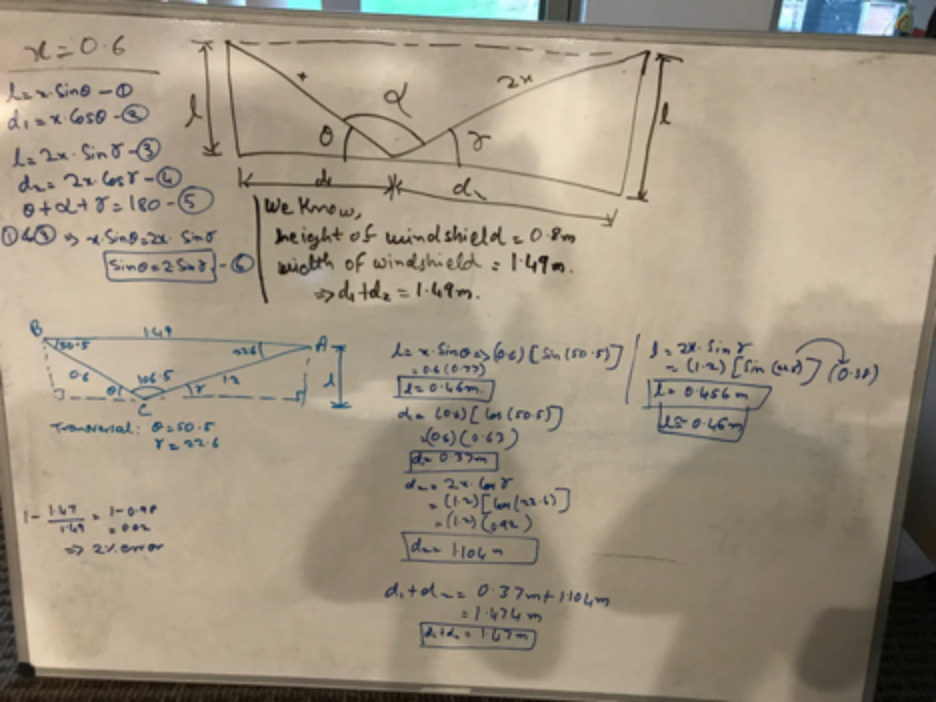 x = 0.6
l = x. Sinθ - ①
d1 = x. Cosθ - ②
l = 2x. Sin r - ③
d2 = 2x. Cos r - ④
θ + α + r = 180 - ⑤
① & ③ => x. Sinθ = 2x. Sin r
Sinθ = 2 Sin r - ⑥
l
x
α
2x
θ
r
l
d1
d2
We Know,
height of windshield = 0.8m
width of windshield = 1.49m.
=> d1 + d2 = 1.49m.
B
1.49
A
50.5
22.6
0.6
106.5
1.2
θ
r
l
C
Transversal: θ = 50.5
r = 22.6
1 - 1.47/1.49 = 1 - 0.98
= 0.02
=> 2% error
l = x. Sinθ => (0.6) [Sin (50.5)]
= 0.6 (0.77)
l = 0.46m.
d1 = (0.6) [Cos (50.5)]
= (0.6) (0.63)
d1 = 0.37m
d2 = 2x. Cos r
= (1.2) [Cos (22.6)]
= (1.2) (.92)
d2 = 1.104m
d1 + d2 = 0.37m + 1.104m
= 1.474m
d1 + d2 = 1.47m
l = 2x. Sin r
= (1.2) [Sin (22.6)] (0.38)
l = 0.456m
l ≈ 0.46m